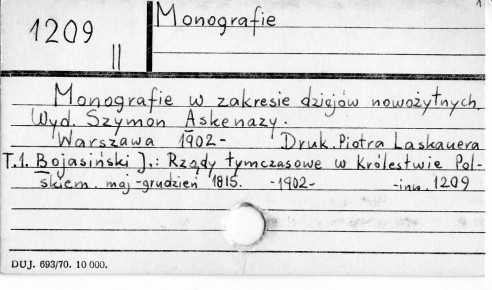 1209
II
Monografie
1
Monografie w zakresie dziejów nowożytnych.
Wyd. Szymon Askenazy.
Warszawa 1902- Druk. Piotra Laskauera
T.1. Bojasiński J.: Rządy tymczasowe w Królestwie Pol-
skiem. maj-grudzień 1815. -1902- -inw. 1209
DUJ. 693/70. 10 000.